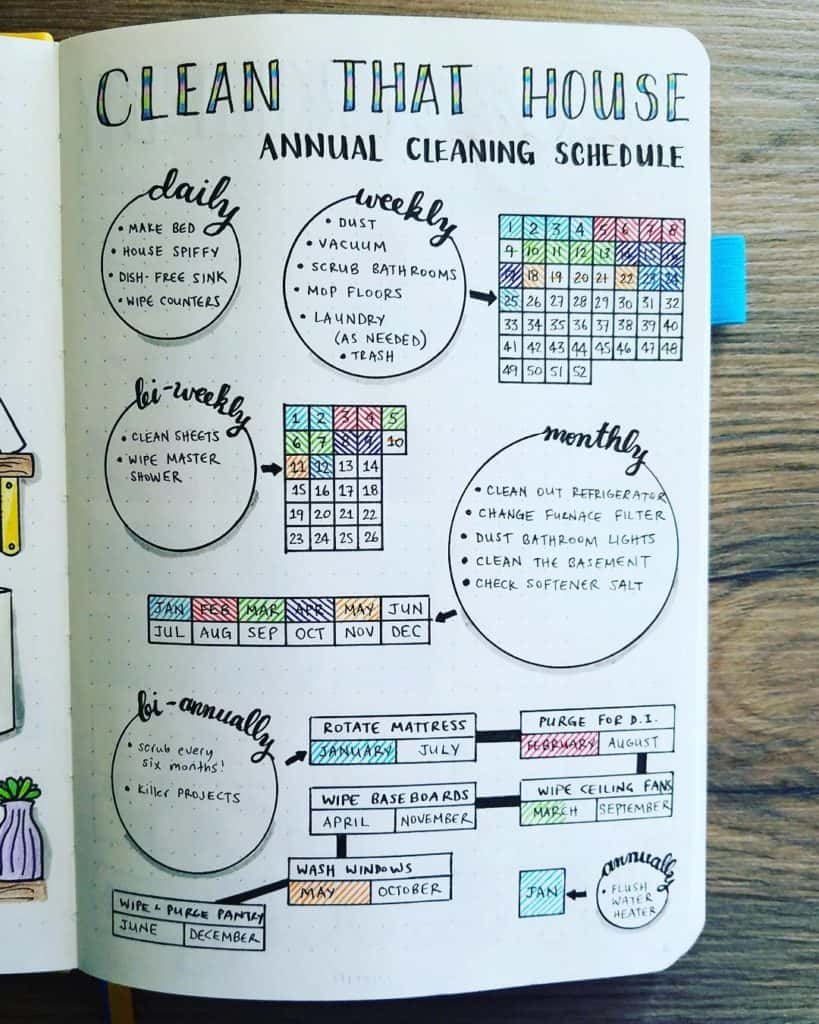 CLEAN THAT HOUSE
ANNUAL CLEANING SCHEDULE
daily
• MAKE BED
• HOUSE SPIFFY
• DISH-FREE SINK
• WIPE COUNTERS
weekly
• DUST
• VACUUM
• SCRUB BATHROOMS
• MOP FLOORS
• LAUNDRY
(AS NEEDED)
• TRASH
1 2 3 4 5 6 7 8
9 10 11 12 13 14 15 16
17 18 19 20 21 22 23 24
25 26 27 28 29 30 31 32
33 34 35 36 37 38 39 40
41 42 43 44 45 46 47 48
49 50 51 52
bi-weekly
• CLEAN SHEETS
• WIPE MASTER
SHOWER
1 2 3 4 5
6 7 8 9 10
11 12 13 14
15 16 17 18
19 20 21 22
23 24 25 26
monthly
• CLEAN OUT REFRIGERATOR
• CHANGE FURNACE FILTER
• DUST BATHROOM LIGHTS
• CLEAN THE BASEMENT
• CHECK SOFTENER SALT
JAN FEB MAR APR MAY JUN
JUL AUG SEP OCT NOV DEC
bi-annually
• Scrub every
six months!
• Killer PROJECTS
ROTATE MATTRESS
JANUARY JULY
PURGE FOR D.I.
FEBRUARY AUGUST
WIPE CEILING FANS
MARCH SEPTEMBER
WIPE BASEBOARDS
APRIL NOVEMBER
WASH WINDOWS
MAY OCTOBER
WIPE & PURGE PANTRY
JUNE DECEMBER
annually
• FLUSH
WATER
HEATER
JAN